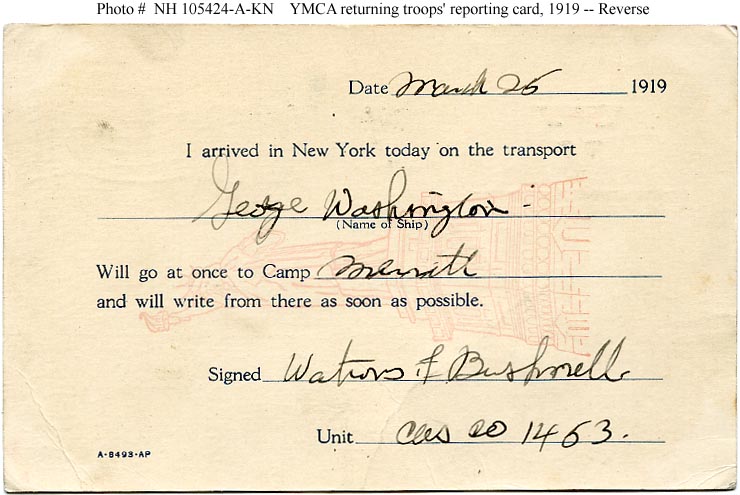 Photo # NH 105424-A-KN YMCA returning troops' reporting card, 1919 -- Reverse
Date March 26 1919
I arrived in New York today on the transport
George Washington
(Name of Ship)
Will go at once to Camp Merritt
and will write from there as soon as possible.
Signed F Bushnell
Unit Cas Co 1453.
A-8493-AP